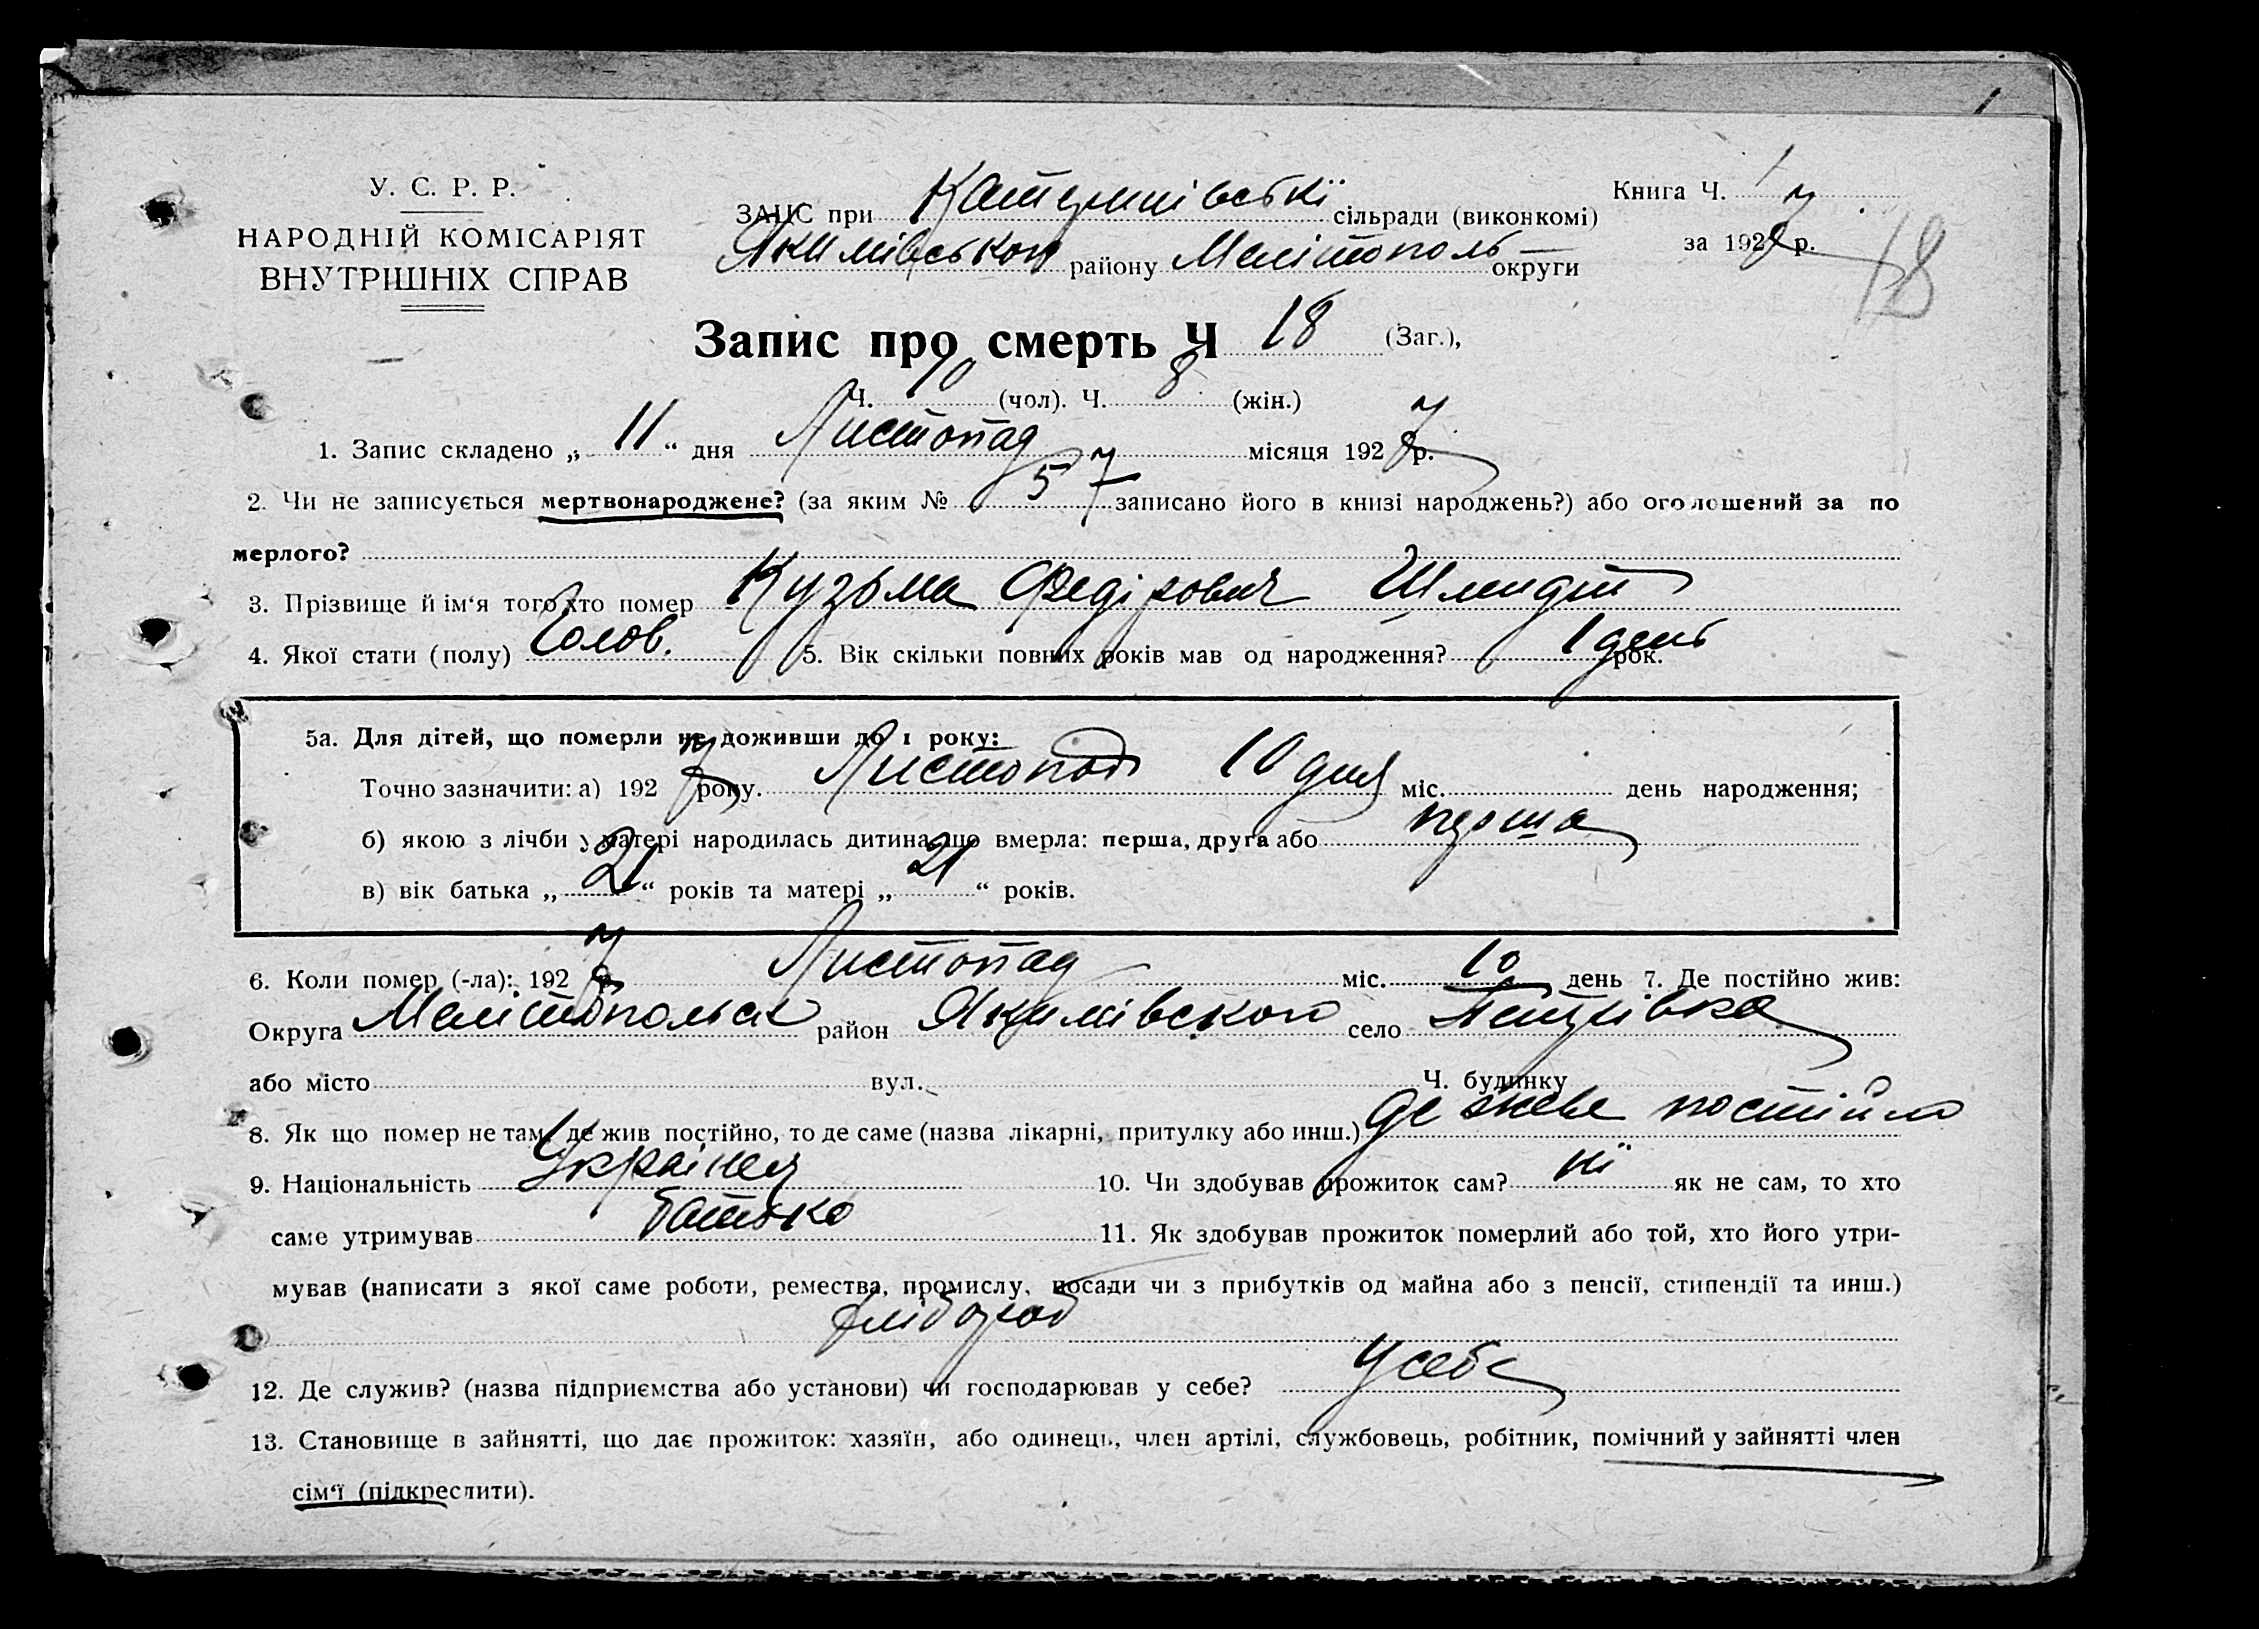 У. С. Р. Р.
НАРОДНІЙ КОМІСАРІЯТ
ВНУТРІШНІХ СПРАВ
ЗАГС при сільради (виконкомі)
Якимівського району Мелітополь округи
Книга Ч. 1
за 1927 р.
18
Запис про смерть Ч 18 (Заг.),
Ч. 10 (чол). Ч. 8 (жін.)
1. Запис складено „ 11 “ дня Листопад місяця 1927 р.
2. Чи не записується мертвонароджене? (за яким № 57 записано його в книзі народжень?) або оголошений за по
мерлого?
3. Прізвище й ім‘я того хто помер Кузьма Федірович Шмидт
4. Якої стати (полу) Чолов. 5. Вік скільки повних років мав од народження? 1 день рок.
5а. Для дітей, що померли не доживши до 1 року:
Точно зазначити: а) 1927 року. Листопад 10 дня міс. день народження;
б) якою з лічби у матері народилась дитина що вмерла: перша, друга або перша
в) вік батька „ 21 “ років та матері „ 21 “ років.
6. Коли помер (-ла): 1927 р. Листопад міс. 10 день 7. Де постійно жив:
Округа Мелітопольск район Якимівского село
або місто вул. Ч. будинку
8. Як що помер не там, де жив постійно, то де саме (назва лікарні, притулку або инш.) де живе постійно
9. Національність Українец 10. Чи здобував прожиток сам? ні як не сам, то хто
саме утримував батько 11. Як здобував прожиток померлий або той, хто його утри-
мував (написати з якої саме роботи, ремества, промислу, посади чи з прибутків од майна або з пенсії, стипендії та инш.)
хлібороб
12. Де служив? (назва підприємства або установи) чи господарював у себе? у себе
13. Становище в зайнятті, що дає прожиток: хазяїн, або одинець, член артілі, службовець, робітник, помічний у зайнятті член
сім‘ї (підкреслити).